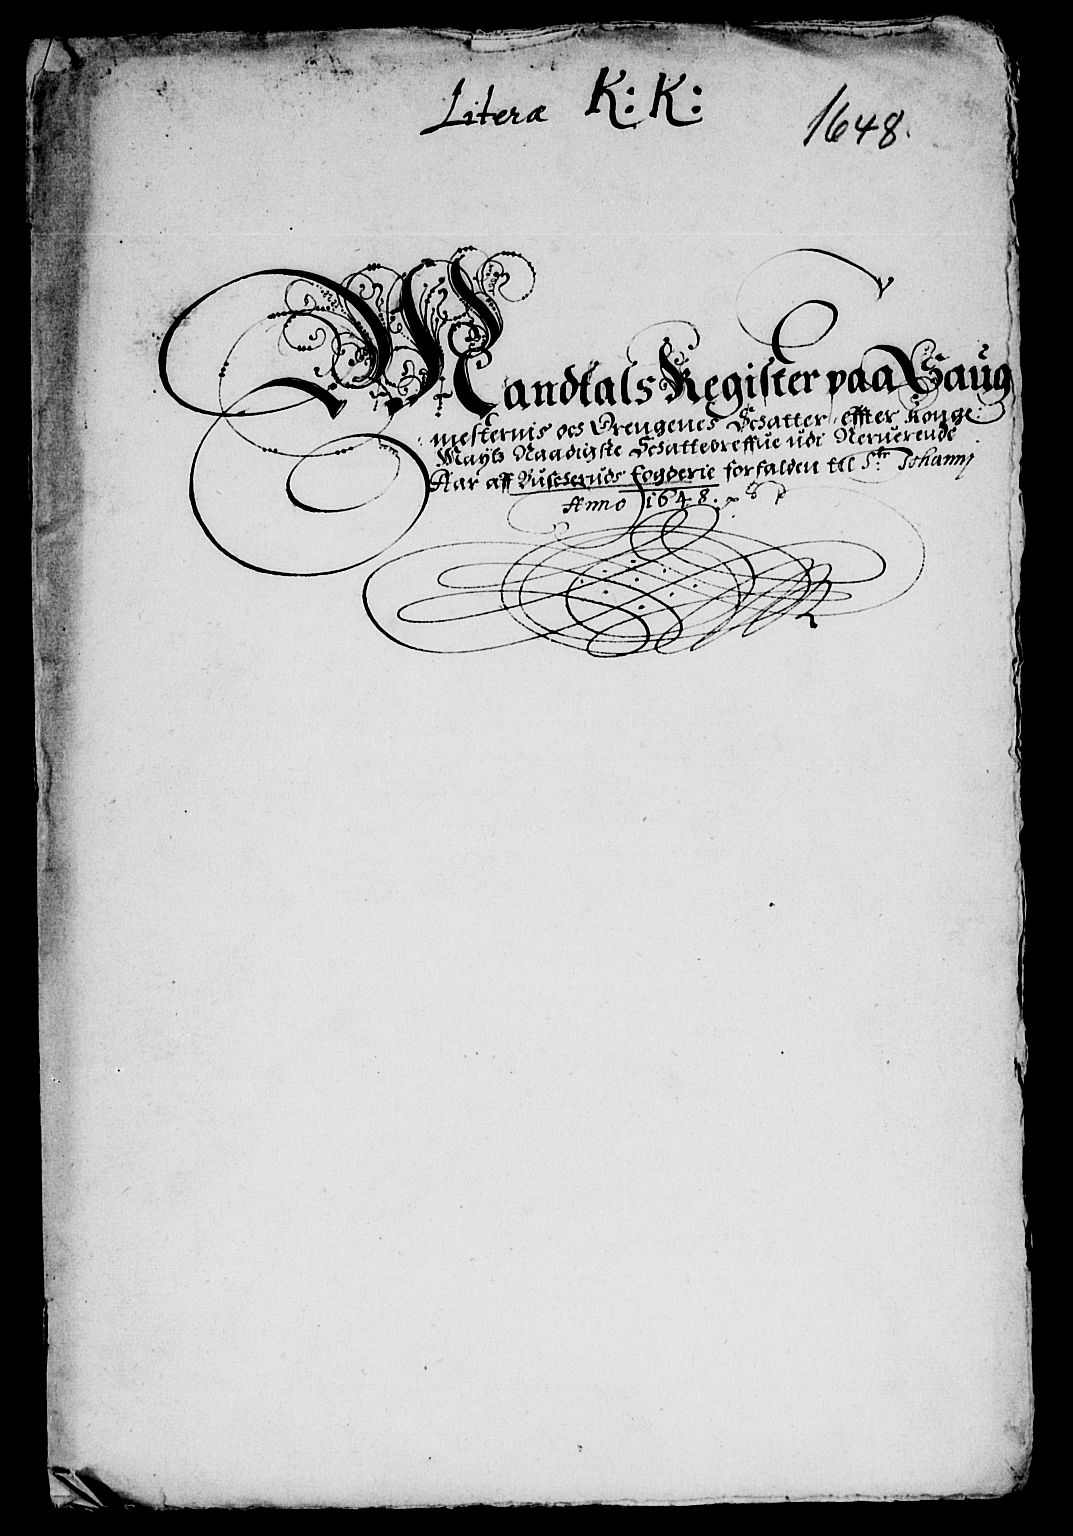 Literæ K: K:
1648.
Mandtals Register paa Saug
mesternis och Drengenes Schatter, effter Konge:
Mayts Naadigste Schattebreffue udi Neruerende
Aar aff Buscheruds fogderie forfalden til Sti Johannj
Anno 1648.